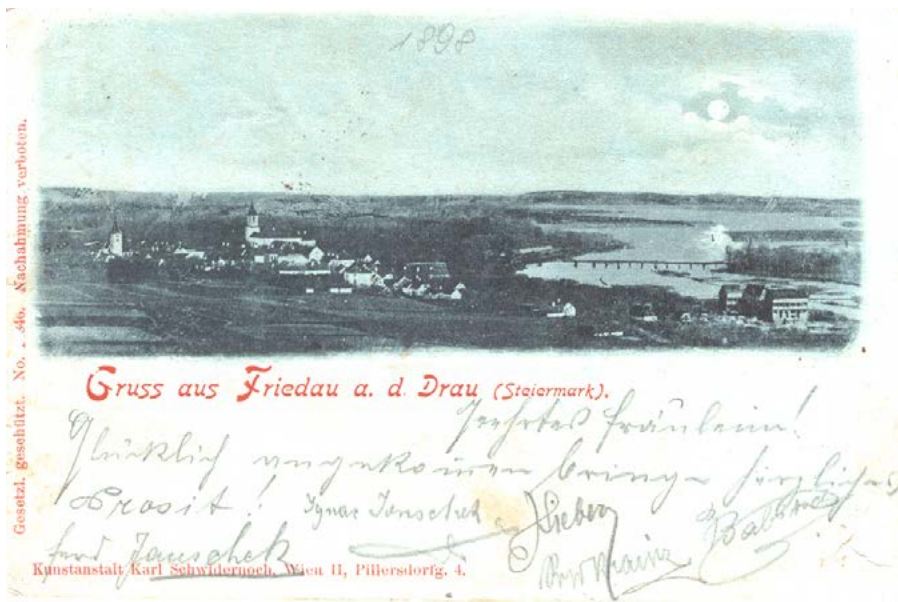 1898
Gesetzl. geschützt. No. 46. Nachahmung verboten.
Gruss aus Friedau a. d. Drau (Steiermark).
Geehrtes Fräulein!
Glücklich angekommen bringe herzliches
Prosit! Ignac Janschek
Sieber
ferd Janschek
Kunstanstalt Karl Schwidernoch, Wien II, Pillersdorfg. 4.